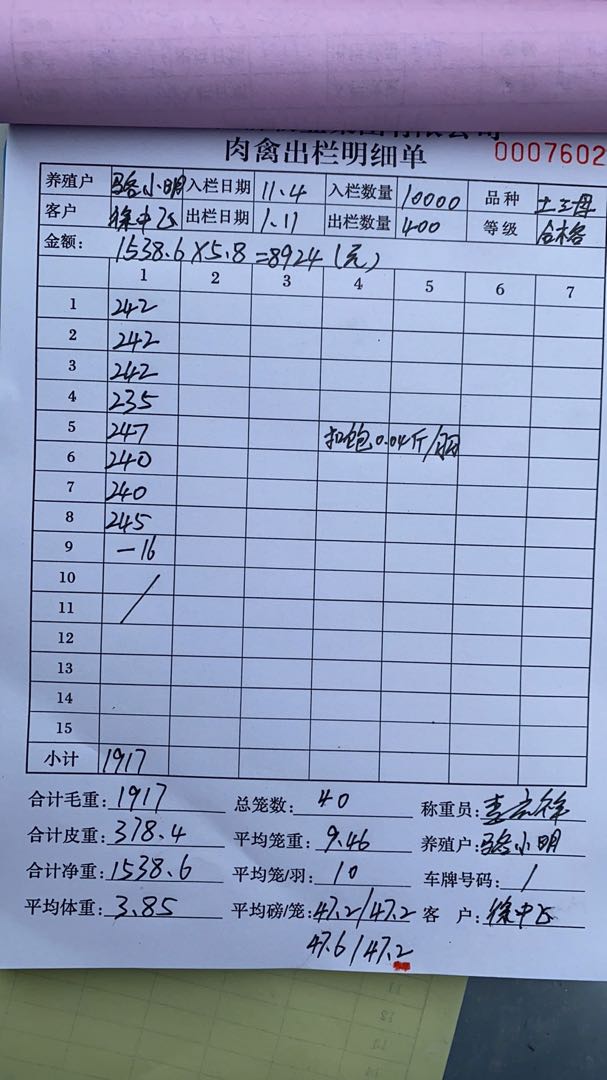 肉禽出栏明细单 0007602
养殖户 骆小明 入栏日期 11.4 入栏数量 10000 品种 土三母
客户 徐中飞 出栏日期 1.11 出栏数量 400 等级 合格
金额: 1538.6×5.8=8924(元)
1 2 3 4 5 6 7
1 242
2 242
3 242
4 235
5 247 扣饱0.04斤/羽
6 240
7 240
8 245
9 -16
10 /
11
12
13
14
15
小计 1917
合计毛重: 1917 总笼数: 40 称重员:
合计皮重: 378.4 平均笼重: 9.46 养殖户: 骆小明
合计净重: 1538.6 平均笼/羽: 10 车牌号码: /
平均体重: 3.85 平均磅/笼: 47.2/47.2 客 户: 徐中飞
47.6/47.2